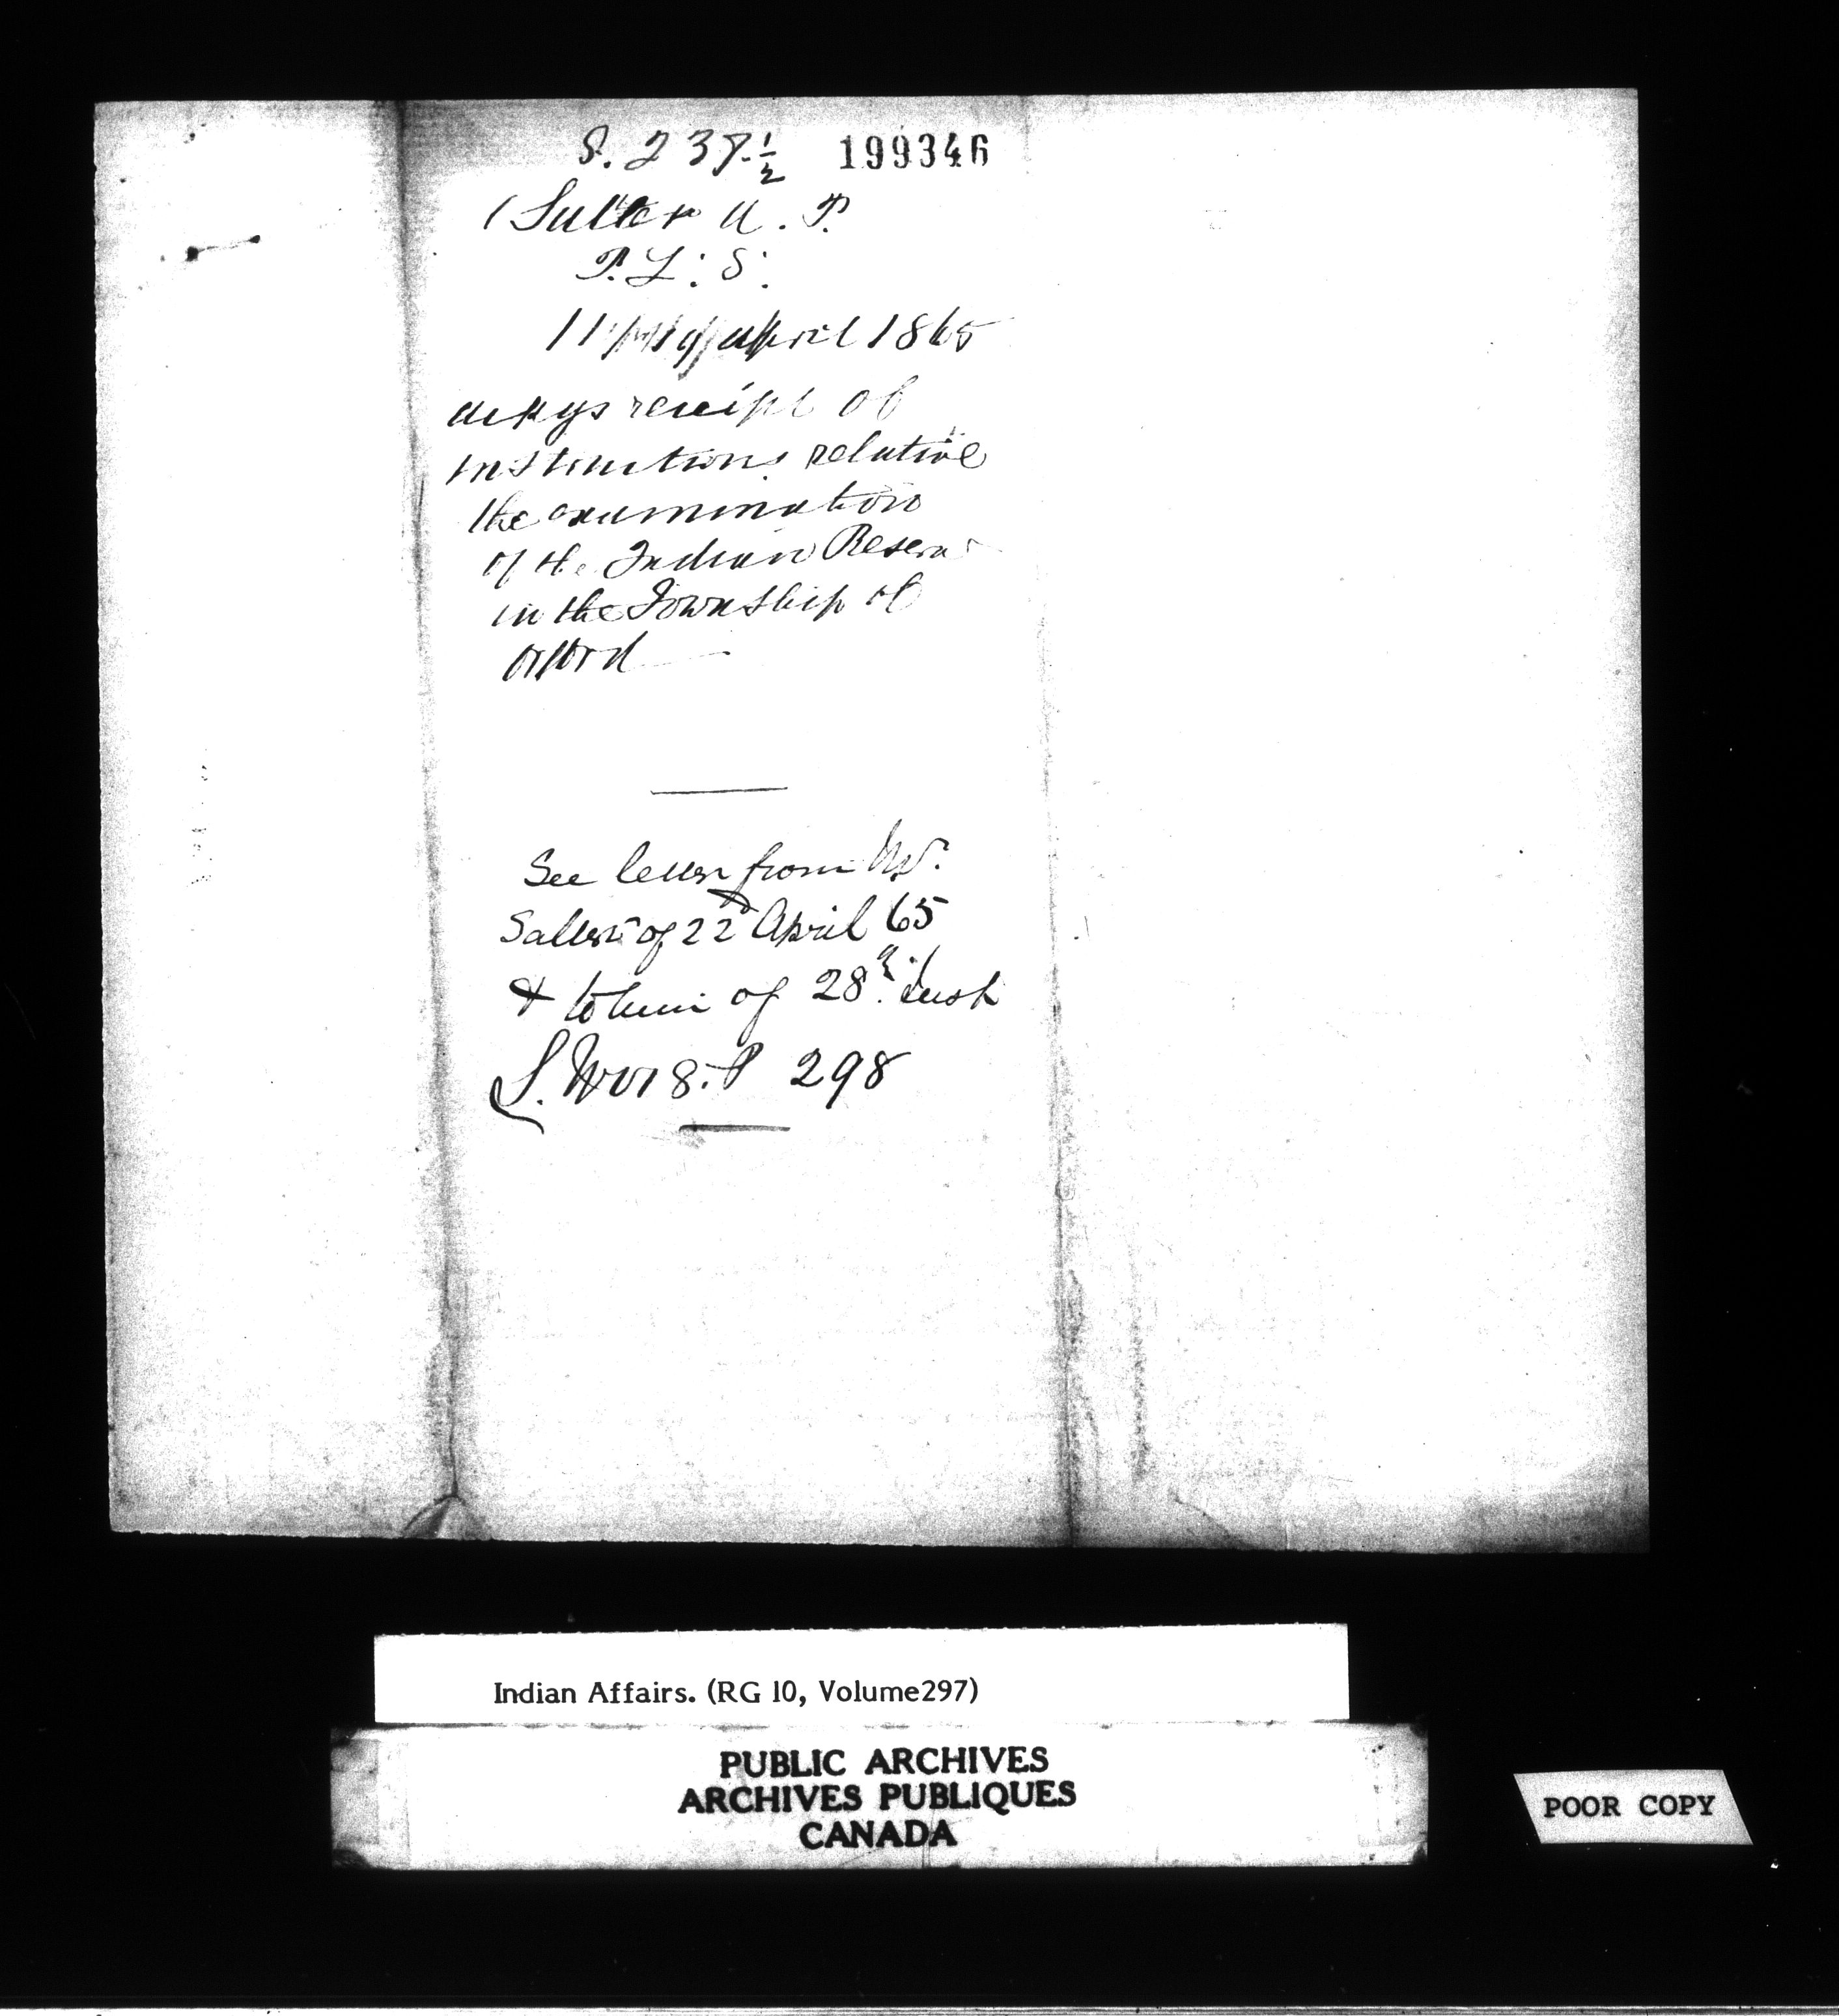 S. 237.½ 199346
Salter A. P.
P. L. S.
11 April 1865
ackgs receipt of
instructions relative
the examination
of the Indian Reserve
in the Township of
Orford
See letter from Mr.
Salter of 22d April 65
& to him of 28th inst
L. 298
Indian Affairs. (RG 10, Volume297)
PUBLIC ARCHIVES
ARCHIVES PUBLIQUES
CANADA
POOR COPY